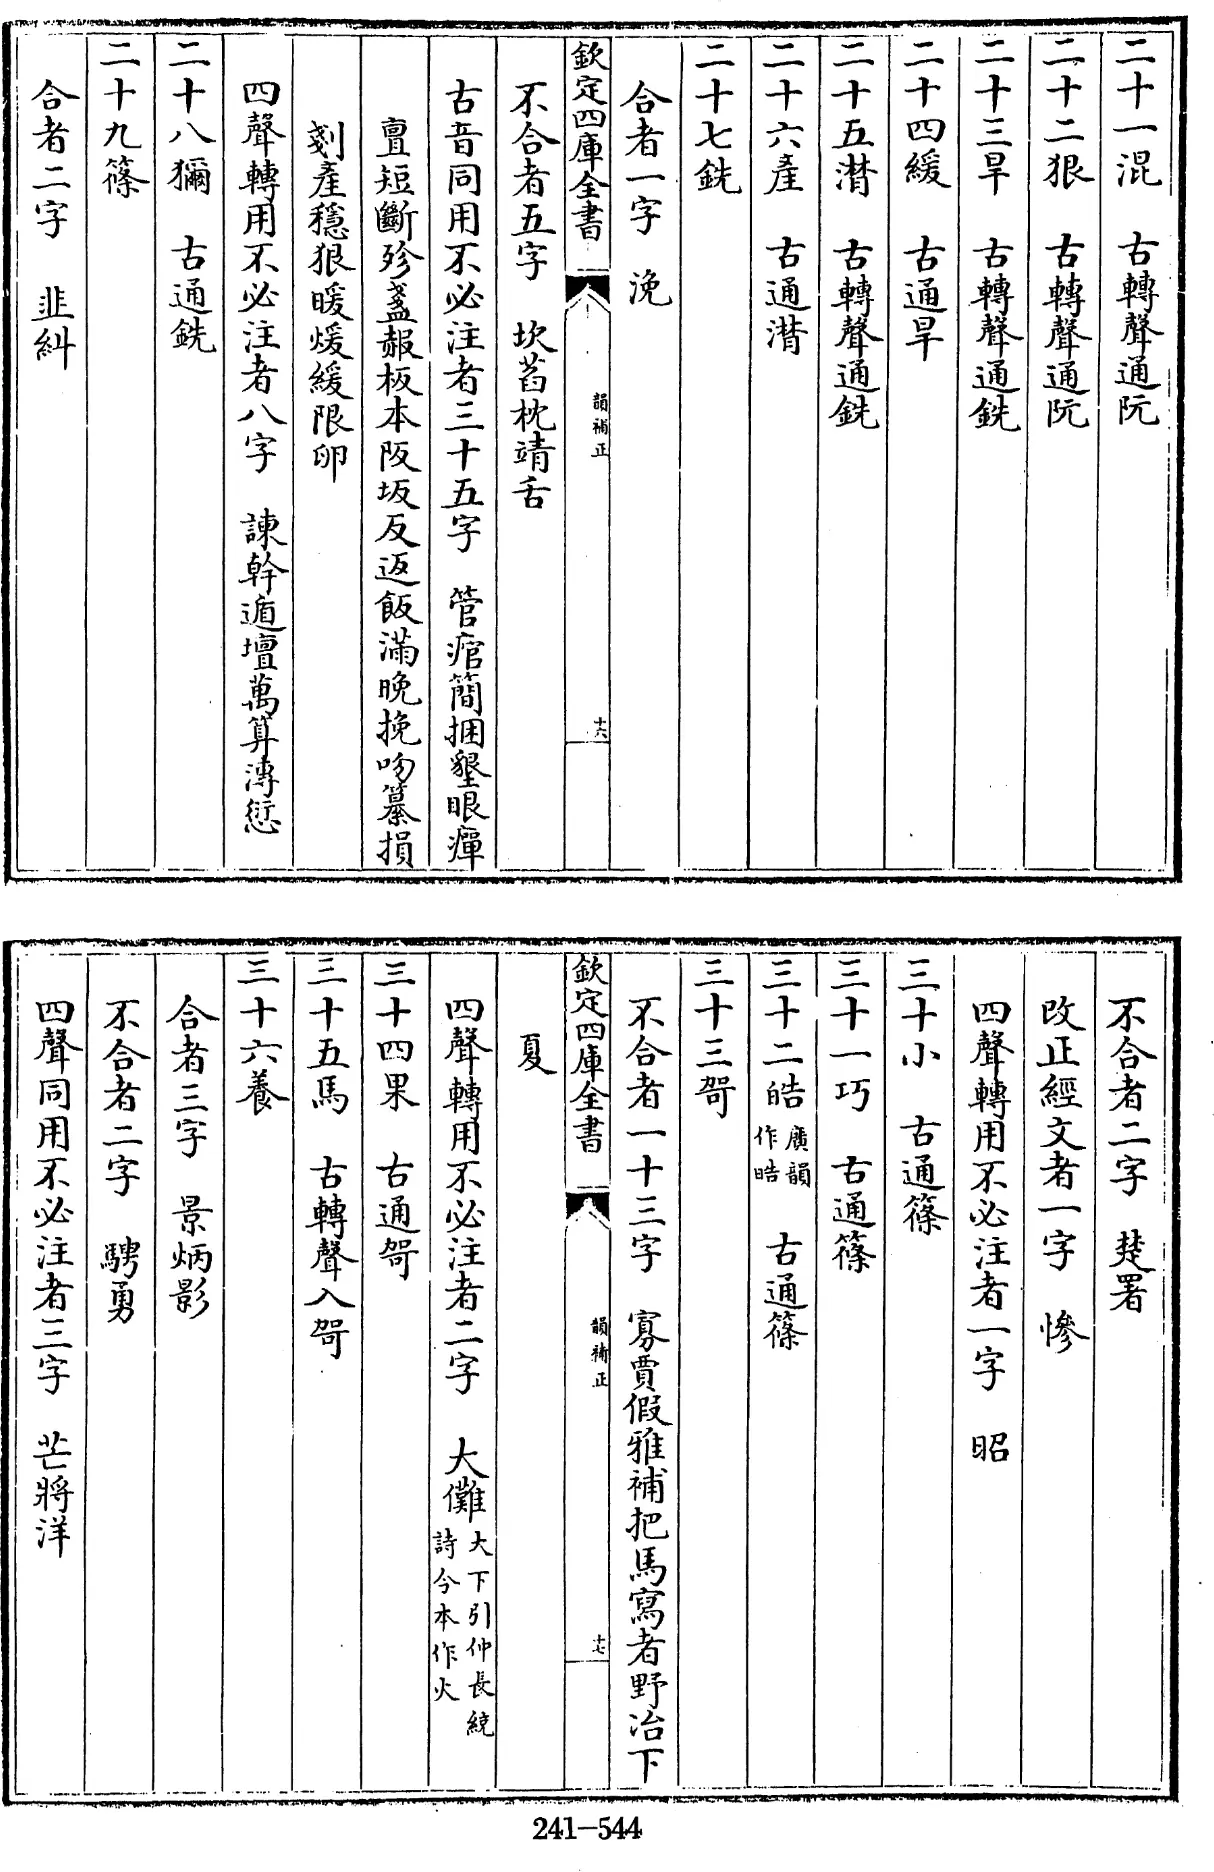 二十一混　古轉聲通阮
二十二狠　古轉聲通阮
二十三旱　古轉聲通銑
二十四緩　古通旱
二十五潸　古轉聲通銑
二十六產　古通潸
二十七銑
合者一字　浼
欽定四庫全書　韻補正　十六
不合者五字　坎萏枕靖舌
古音同用不必注者三十五字　管痯簡捆墾眼癉
亶短斷殄盞赧板本阪坂反返飯滿晚挽吻纂損
剗產穩狠暖煖緩限卵
四聲轉用不必注者八字　諫幹遁壇萬算漙愆
二十八獮　古通銑
二十九篠
合者二字　韭糾
不合者二字　楚署
改正經文者一字　慘
四聲轉用不必注者一字　昭
三十小　古通篠
三十一巧　古通篠
三十二皓廣韻作晧　古通篠
三十三哿
不合者一十三字　寡賈假雅補把馬寫者野冶下
欽定四庫全書　韻補正　十七
夏
四聲轉用不必注者二字　大儺大下引仲長統詩今本作火
三十四果　古通哿
三十五馬　古轉聲入哿
三十六養
合者三字　景炳影
不合者二字　騁勇
四聲同用不必注者三字　芒將洋
241-544